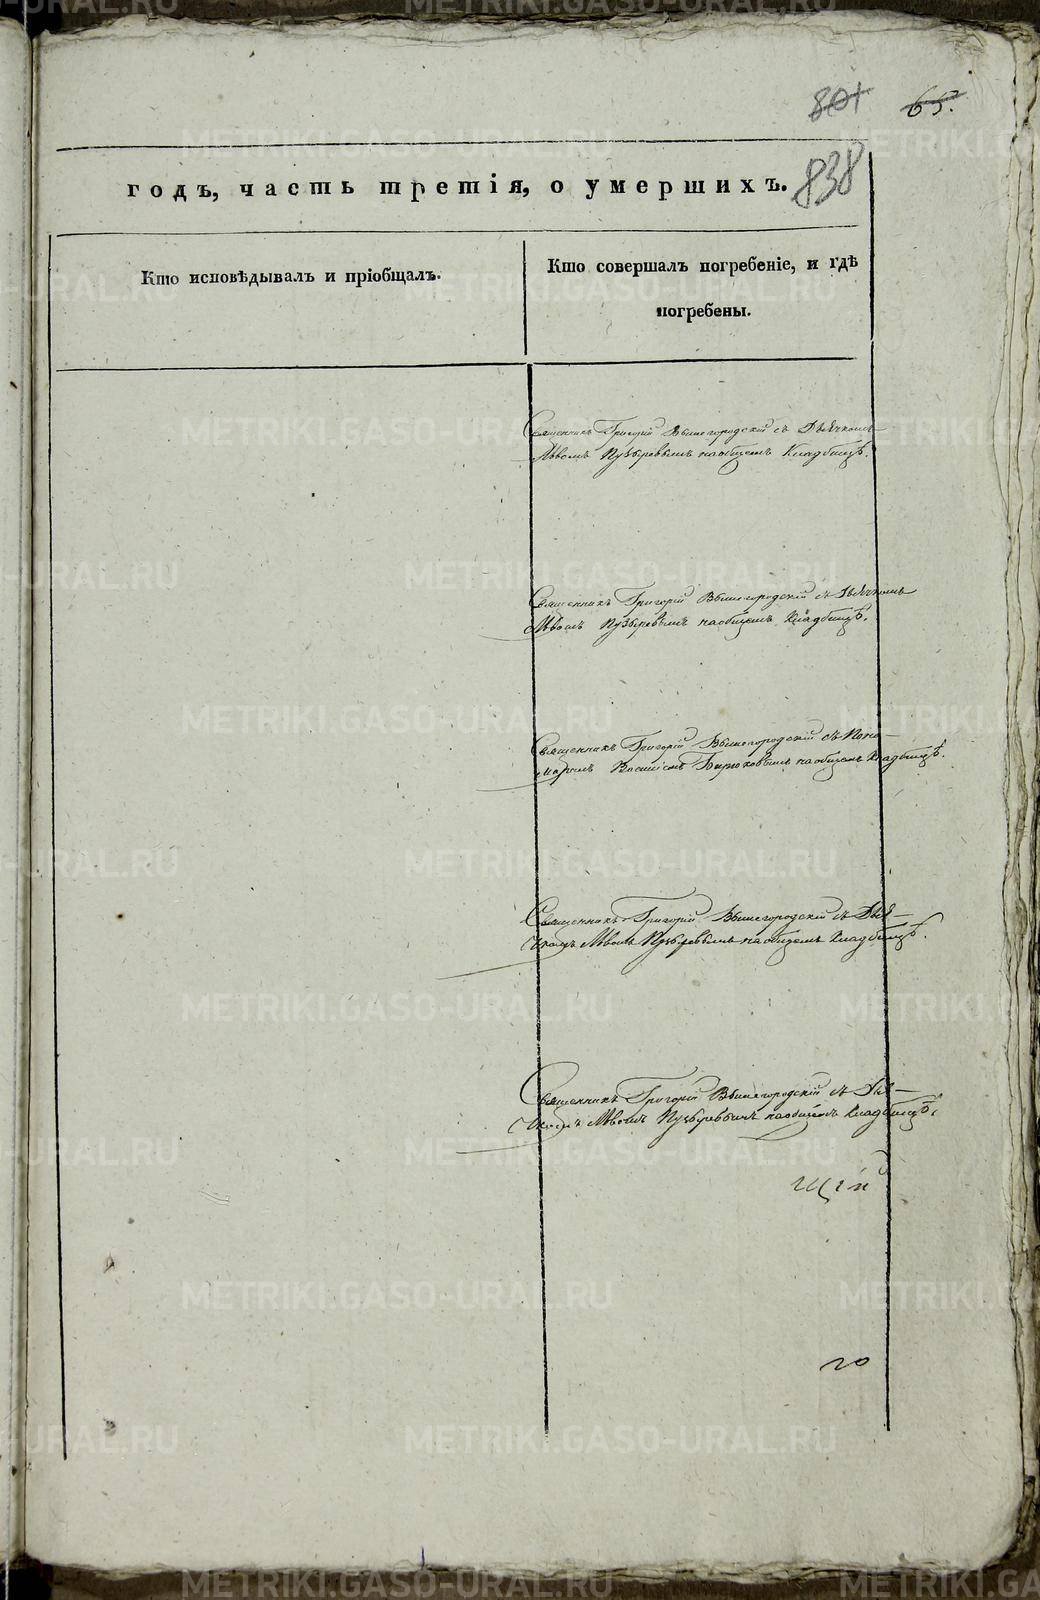 801 65.
838
годъ, часть третія, о умершихъ.
Кто исповѣдывалъ и пріобщалъ.
Кто совершалъ погребеніе, и гдѣ
погребены.
Священникъ Григорій Вышегородскій съ Дьячкомъ
Львомъ Пузыревымъ на общемъ Кладбищѣ.
Священникъ Григорій Вышегородскій съ Дьячкомъ
Львомъ Пузыревымъ на общемъ Кладбищѣ.
Священникъ Григорій Вышегородскій съ Поно-
маремъ Бирюковымъ на общемъ Кладбищѣ.
Священникъ Григорій Вышегородскій съ Дья-
чкомъ Львомъ Пузыревымъ на общемъ Кладбищѣ.
Священникъ Григорій Вышегородскій съ Дья-
чкомъ Львомъ Пузыревымъ на общемъ Кладбищѣ.
щій
го
METRIKI.GASO-URAL.RU